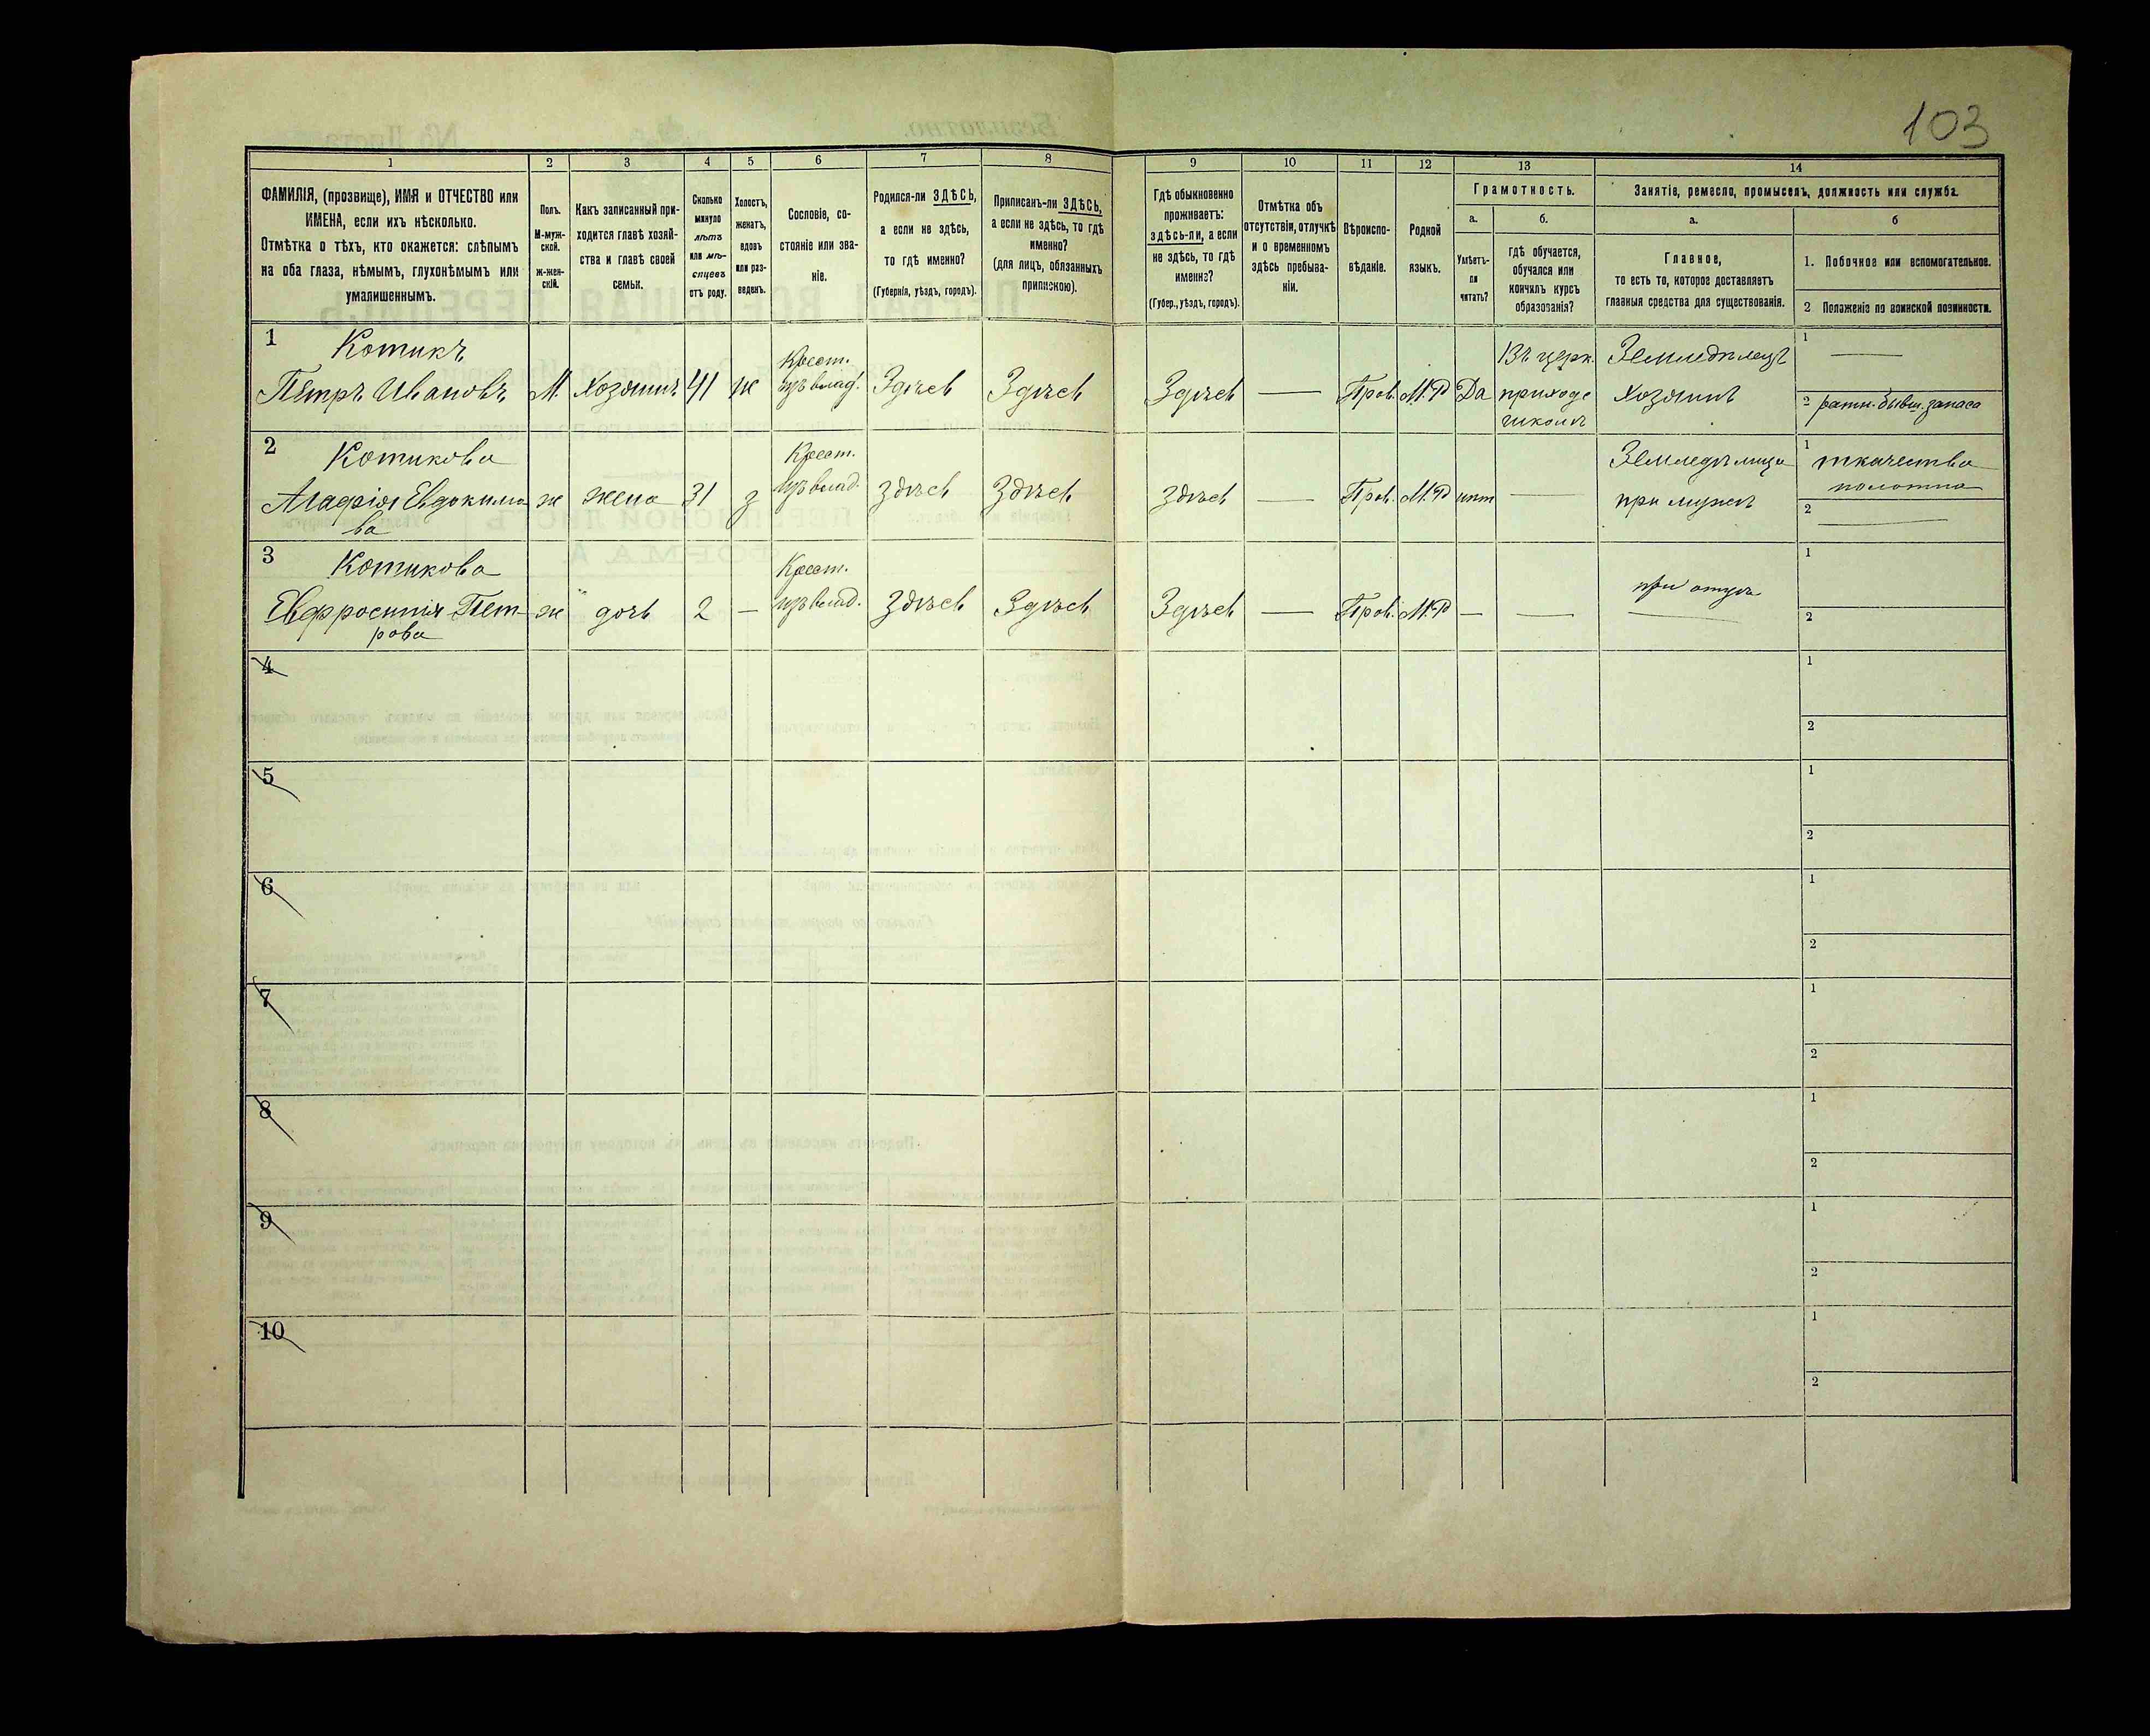 103
1
2
3
4
5
6
7
8
9
10
11
12
13
14
ФАМИЛІЯ, (прозвище), ИМЯ и ОТЧЕСТВО или
ИМЕНА, если ихъ нѣсколько.
Отмѣтка о тѣхъ, кто окажется: слѣпымъ
на оба глаза, нѣмымъ, глухонѣмымъ или
умалишеннымъ.
Полъ.
М-муж-
ской.
ж-жен-
скій.
Какъ записанный при-
ходится главѣ хозяй-
ства и главѣ своей
семьи.
Сколько
минуло
лѣтъ
или мѣ-
сяцевъ
отъ роду.
Холостъ,
женатъ,
вдовъ
или раз-
веденъ.
Сословіе, со-
стояніе или зва-
ніе.
Родился-ли ЗДѢСЬ,
а если не здѣсь,
то гдѣ именно?
(Губернія, уѣздъ, городъ).
Приписанъ-ли ЗДѢСЬ,
а если не здѣсь, то гдѣ
именно?
(для лицъ, обязанныхъ
припискою).
Гдѣ обыкновенно
проживаетъ:
здѣсь-ли, а если
не здѣсь, то гдѣ
именно?
(Губер., уѣздъ, городъ).
Отмѣтка объ
отсутствіи, отлучкѣ
и о временномъ
здѣсь пребыва-
ніи.
Вѣроиспо-
вѣданіе.
Родной
языкъ.
Грамотность.
а.
б.
Умѣетъ-
ли
читать?
гдѣ обучается,
обучался или
кончилъ курсъ
образованія?
Занятіе, ремесло, промыселъ, должность или служба.
а.
б
Главное,
то есть то, которое доставляетъ
главныя средства для существованія.
1. Побочное или вспомогательное.
2 Положеніе по воинской повинности.
1 Котикъ
Петръ Ивановъ М. Хозяинъ 41 ж Крест. изъ влад. Здѣсь Здѣсь Здѣсь — Прав. М.Р Да Въ церк. приходс школѣ Земледѣлецъ хозяинъ
1 —
2 ратн. бывш. запаса
2 Котикова
Агафія Евдокимо ж жена 31 з Крест. изъ влад. Здѣсь Здѣсь Здѣсь — Прав. М.Р нѣт — Земледѣлица при мужѣ
ва
1 ткачество
полотна
2 —
3 Котикова
Евфросинія Пет- ж дочь 2 — Крест. изъ влад. Здѣсь Здѣсь Здѣсь — Прав. М.Р — — при отцѣ
рова
1
2
4
1
2
5
1
2
6
1
2
7
1
2
8
1
2
9
1
2
10
1
2